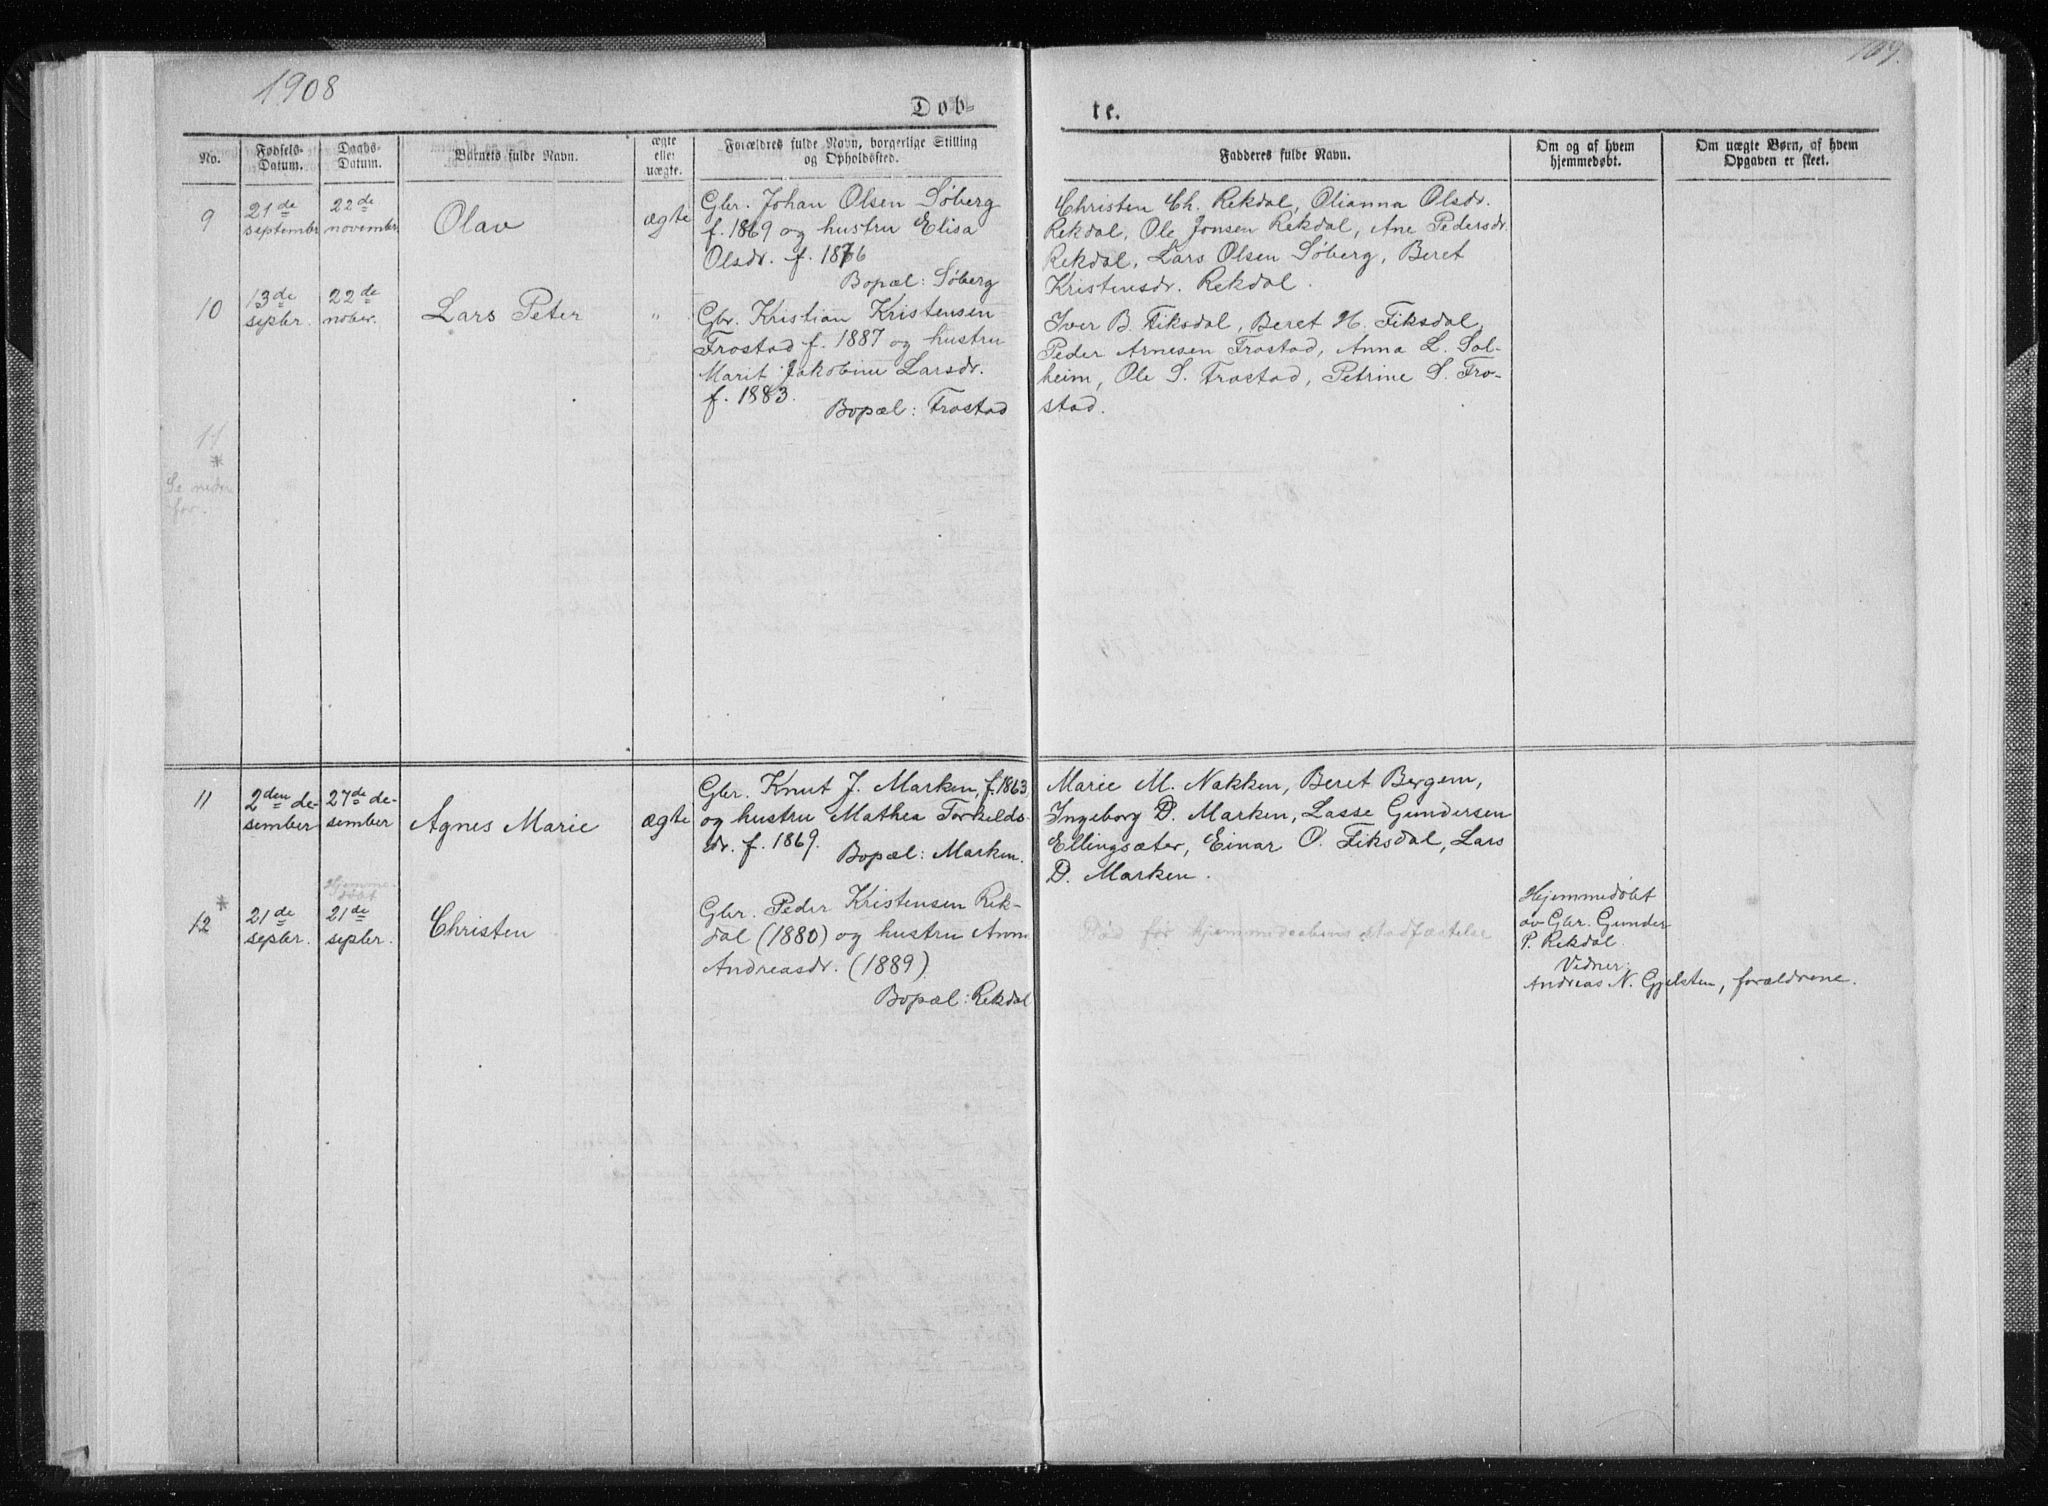 1908
107.
Døb-
te.
No.
Fødsels-
Datum.
Daabs-
Datum.
Barnets fulde Navn.
ægte
eller
uægte.
Forældres fulde Navn, borgerlige Stilling
og Opholdssted.
Fadderes fulde Navn.
Om og af hvem
hjemmedøbt.
Om uægte Børn, af hvem
Opgaven er skeet.
9
21de
septembr
22de
novembr
Olav
ægte
Gbr. Johan Olsen Søberg
f. 1869 og hustru Elisa
Olsdr. f. 1876
Bopæl: Søberg
Christen Ch. Rekdal, Olianna Olsdr.
Rekdal, Ole Jonsen Rekdal, Ane Pedersdr.
Rekdal, Lars Olsen Søberg, Beret
Kristensdr. Rekdal.
10
13de
septbr.
22de
nober.
Lars Peter
"
Gbr. Kristian Kristensen
Frostad f. 1887 og hustru
Marit Jakobine Larsdr.
f. 1883.
Bopæl: Frostad
Iver B. Fiksdal, Beret H. Fiksdal,
Peder Arnesen Frostad, Anna L. Sol-
heim, Ole S. Frostad, Petrine S. Fro-
stad.
11
*
Se neden
for.
11
2den de-
sember
27de de-
sember
Agnes Marie
ægte
Gbr. Knut J. Marken, f. 1863
og hustru Mathea Torkelds-
dr. f. 1869.
Bopæl: Marken.
Marie M. Nakken, Beret Bergem,
Ingeborg D. Marken, Lasse Gundersen
Ellingsæter, Einar O. Fiksdal, Lars
D. Marken.
*
12
21de
septbr.
Hjemme-
døbt
21de
septbr.
Christen
Gbr. Peder Kristensen Rek-
dal (1880) og hustru Anna
Andreasdr. (1889)
Bopæl: Rekdal
Død før hjemmedaabens stadfæstelse
Hjemmedøbt
av Gbr. Gunder
P. Rekdal.
Vidner:
Andreas N. Gjelsten, forældrene.